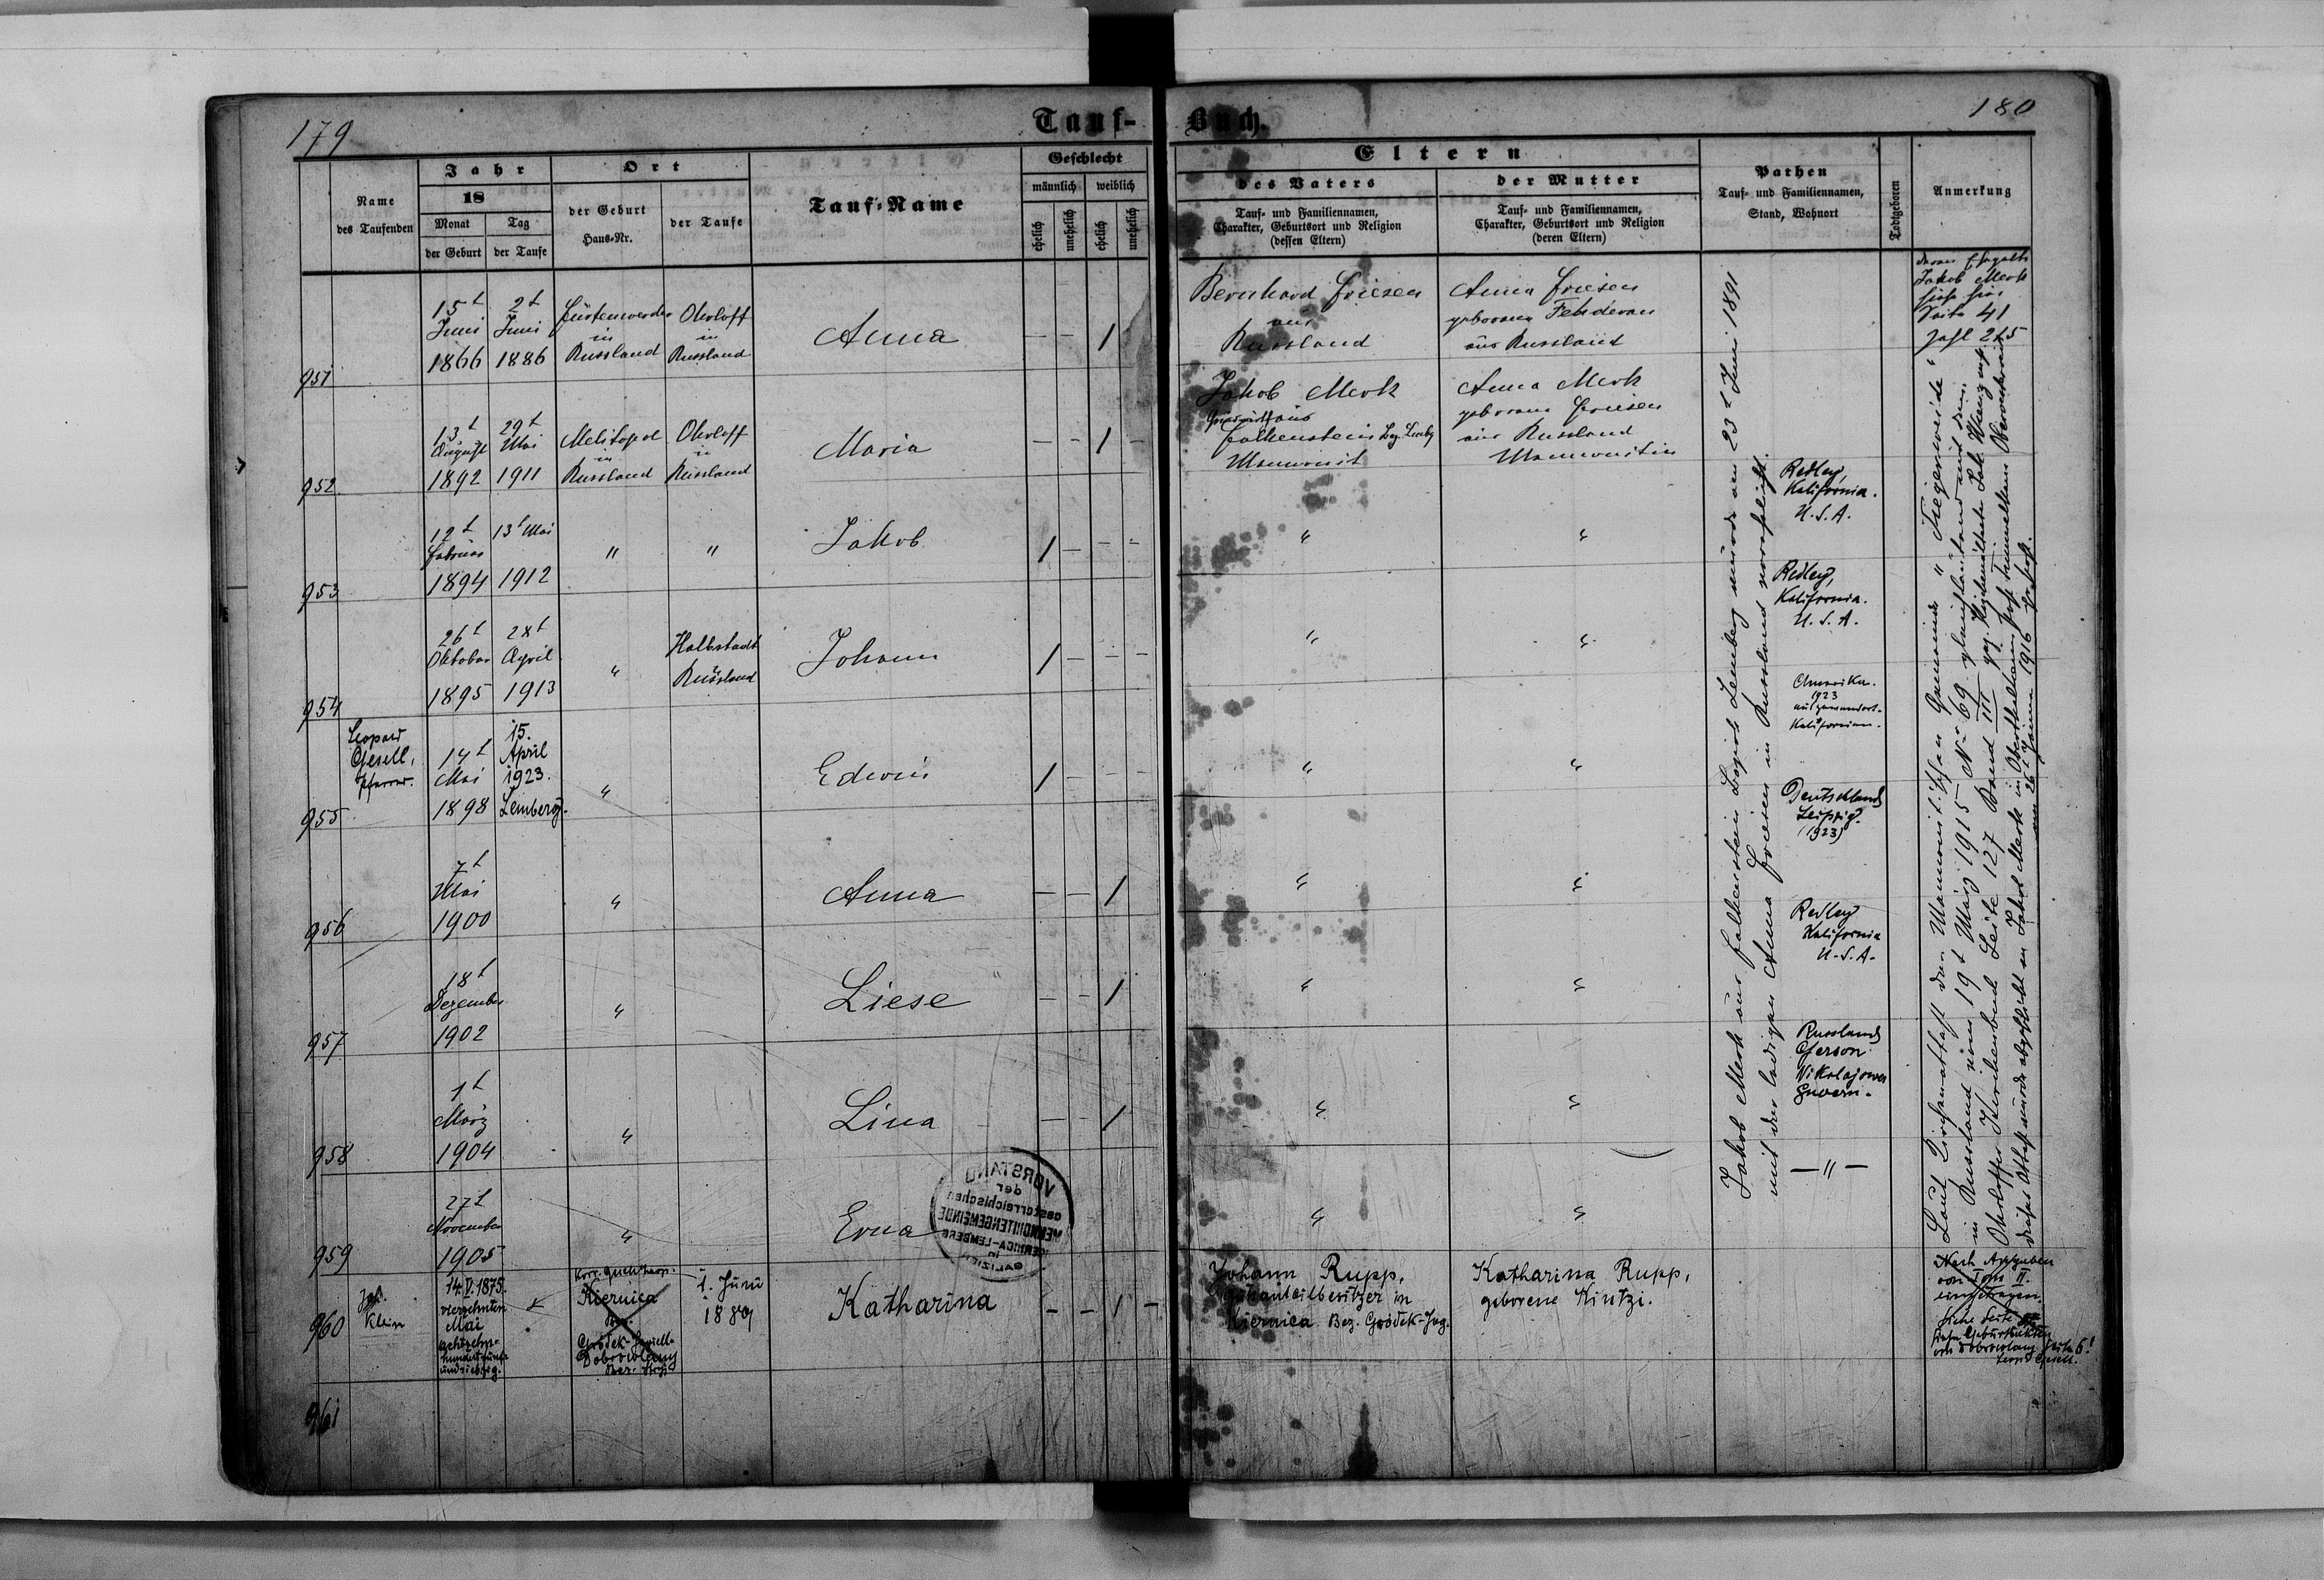 179
Tauf-
Buch.
180
Name
des Taufenden
Jahr
18
Monat
Tag
der Geburt
der Taufe
Ort
der Geburt
Haus-Nr.
der Taufe
Tauf-Name
Geschlecht
männlich
weiblich
ehelich
unehelich
ehelich
unehelich
Eltern
des Vaters
Tauf- und Familiennamen,
Charakter, Geburtsort und Religion
(dessen Eltern)
der Mutter
Tauf- und Familiennamen,
Charakter, Geburtsort und Religion
(deren Eltern)
Pathen
Tauf- und Familiennamen,
Stand, Wohnort
Todtgeboren
Anmerkung
951
15t
Juni
1866
2t
Juni
1886
Fürstenwerder
in
Russland
Ohrloff
in
Russland
Anna
— — 1 —
Bernhard Friesen
aus
Russland
Anna Friesen
geborene Fehderau
aus Russland
Jakob Merk
siehe hier
Seite 41
Zahl 245
952
13t
August
1892
29t
Mai
1911
Melitopol
in
Russland
Ohrloff
in
Russland
Maria
— — 1 —
Jakob Merk
aus
Falkenstein Bez. Lemberg
Mennonit
Anna Merk
geborene Friesen
aus Russland
Mennonitin
Redley,
Kalifornia.
U.S.A.
953
12t
Februar
1894
13t Mai
1912
"
"
Jakob
1 — — —
"
"
Redley,
Kalifornia.
U.S.A.
954
26t
Oktober
1895
28t
April
1913
"
Halbstadt
Russland
Johann
1 — — —
"
"
Amerika.
1923
ausgewandert.
Kalifornien.
955
Leopold
Gesell,
Pfarrer.
14t
Mai
1898
15.
April
1923.
Lemberg.
"
Edwin
1 — — —
"
"
Deutschland
Leipzig.
(1923)
956
7t
Mai
1900
"
Anna
— — 1
"
"
Redley
Kalifornia
U.S.A.
957
18t
Dezember
1902
"
Liese
— — 1
"
"
Russland
Cherson
Nikolajower
Guvern.
958
1t
März
1904
"
Lina
— — 1
"
"
— " —
959
27t
November
1905
"
Erna
"
"
VORSTAND
der
oesterreichischen
MENNONITENGEMEINDE
KIERNICA-LEMBERG
in
GALIZIEN
Jakob Merk aus Falkenstein Bezirk Lemberg wurde am 23t Juni 1891
mit der ledigen Anna Friesen in Russland verehelicht.
Laut Zuschrift der Mennonitischen Gemeinde "Tiegerweide"
in Russland vom 19t März 1915 No 69
Ohrloffer Kirchenbuch Seite 127 Band III
am 26t Jänner 1916
960
Joh.
Klein
14.V.1875.
vierzehnten
Mai
achtzehn-
hundertfünf-
undsiebzig.
Kiernica
Bez.
Gródek-Jagiell.
Dobrowlany
Bez. Stryj
1. Juni
1889
Katharina
— — 1 —
Johann Rupp,
Gutsanteilbesitzer in
Kiernica Bez. Gródek-Jag.
Katharina Rupp,
geborene Kintzi.
Nach Angaben
von Tom II.
eingetragen.
Siehe Seite
von Dobrowlany Seite 6!
Leop. Gesell.
961